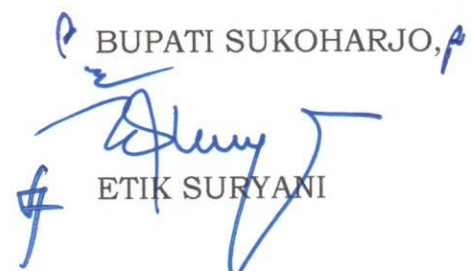 BUPATI SUKOHARJO,
ETIK SURYANI